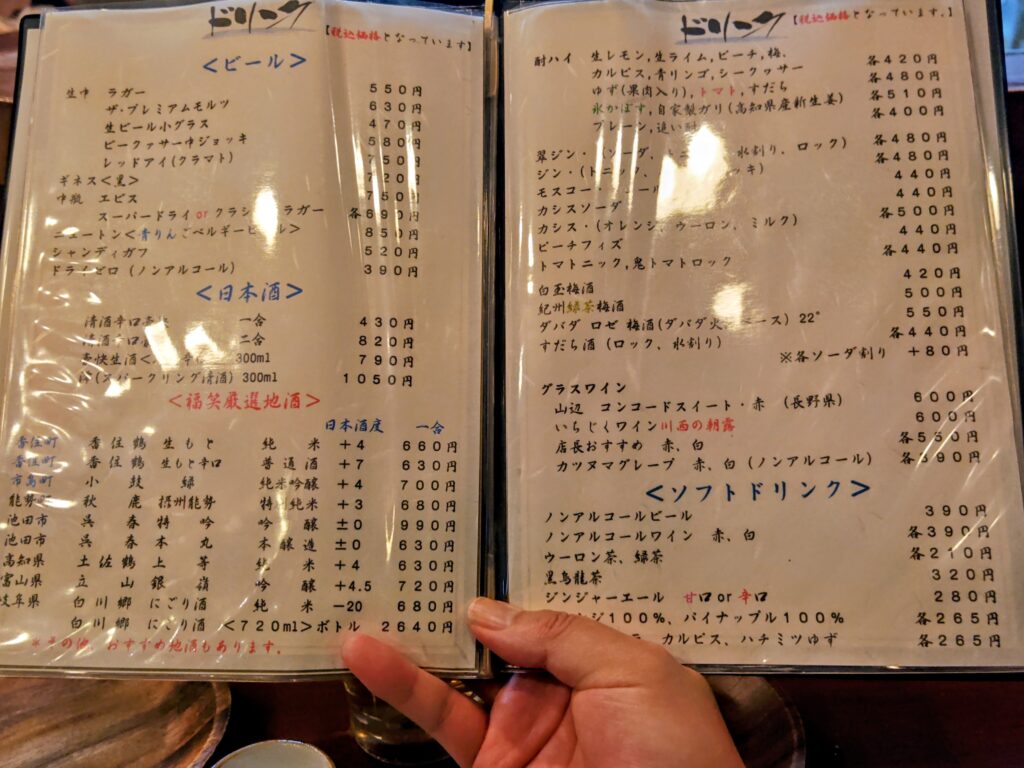 ドリンク 【税込価格となっています】
<ビール>
生中 ラガー 550円
ザ・プレミアムモルツ 630円
生ビール小グラス 470円
ビークァサー中ジョッキ 580円
レッドアイ(クラマト) 750円
ギネス<黒> 720円
中瓶 エビス 750円
スーパードライorクラシックラガー 各690円
ニュートン<青りんごベルギービール> 850円
シャンディガフ 520円
ドライゼロ(ノンアルコール) 390円
<日本酒>
清酒辛口 一合 430円
二合 820円
爽快生酒 300ml 790円
(スパークリング清酒) 300ml 1050円
<福笑厳選地酒>
日本酒度 一合
香住町 香住鶴 生もと 純米 +4 660円
香住町 香住鶴 生もと辛口 普通酒 +7 630円
市島町 小鼓 緑 純米吟醸 +4 700円
能勢町 秋鹿 摂州能勢 特別純米 +3 680円
池田市 呉春特吟 吟醸 ±0 990円
池田市 呉春本丸 本醸造 ±0 630円
高知県 土佐鶴上等 純米 +4 630円
富山県 立山銀嶺 吟醸 +4.5 720円
岐阜県 白川郷 にごり酒 純米 -20 680円
白川郷 にごり酒 <720ml>ボトル 2640円
*その他、おすすめ地酒もあります。
ドリンク 【税込価格となっています。】
酎ハイ 生レモン,生ライム,ピーチ,梅, 各420円
カルピス,青リンゴ,シークァサー 各480円
ゆず(果肉入り),トマト,すだち 各510円
氷かぼす,自家製ガリ(高知県産新生姜) 各400円
プレーン,追い酎
翠ジン・(ソーダ、トニック、水割り、ロック) 各480円
ジン・(トニック、 各480円
モスコーミュール 440円
カシスソーダ 440円
カシス・(オレンジ、ウーロン、ミルク) 各500円
ピーチフィズ 440円
トマトニック,鬼トマトロック 各440円
白玉梅酒 420円
紀州緑茶梅酒 500円
ダバダ ロゼ 梅酒(ダバダ火振ベース) 22° 550円
すだち酒(ロック、水割り) 各440円
※各ソーダ割り +80円
グラスワイン
山辺 コンコードスイート・赤 (長野県) 600円
いちじくワイン川西の朝露 600円
店長おすすめ 赤、白 各550円
カツヌマグレープ 赤、白(ノンアルコール) 各390円
<ソフトドリンク>
ノンアルコールビール 390円
ノンアルコールワイン 赤、白 各390円
ウーロン茶、緑茶 各210円
黒烏龍茶 320円
ジンジャーエール 甘口or辛口 280円
100%、パイナップル100% 各265円
カルピス、ハチミツゆず 各265円